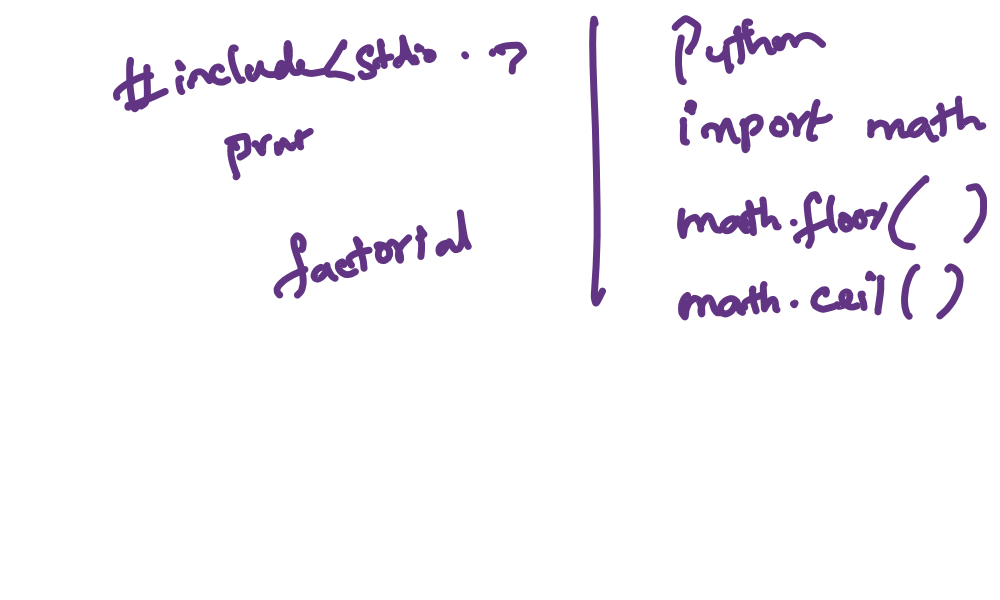 #include<stdio . >
prnt
factorial
Python
import math
math.floor( )
math.ceil( )